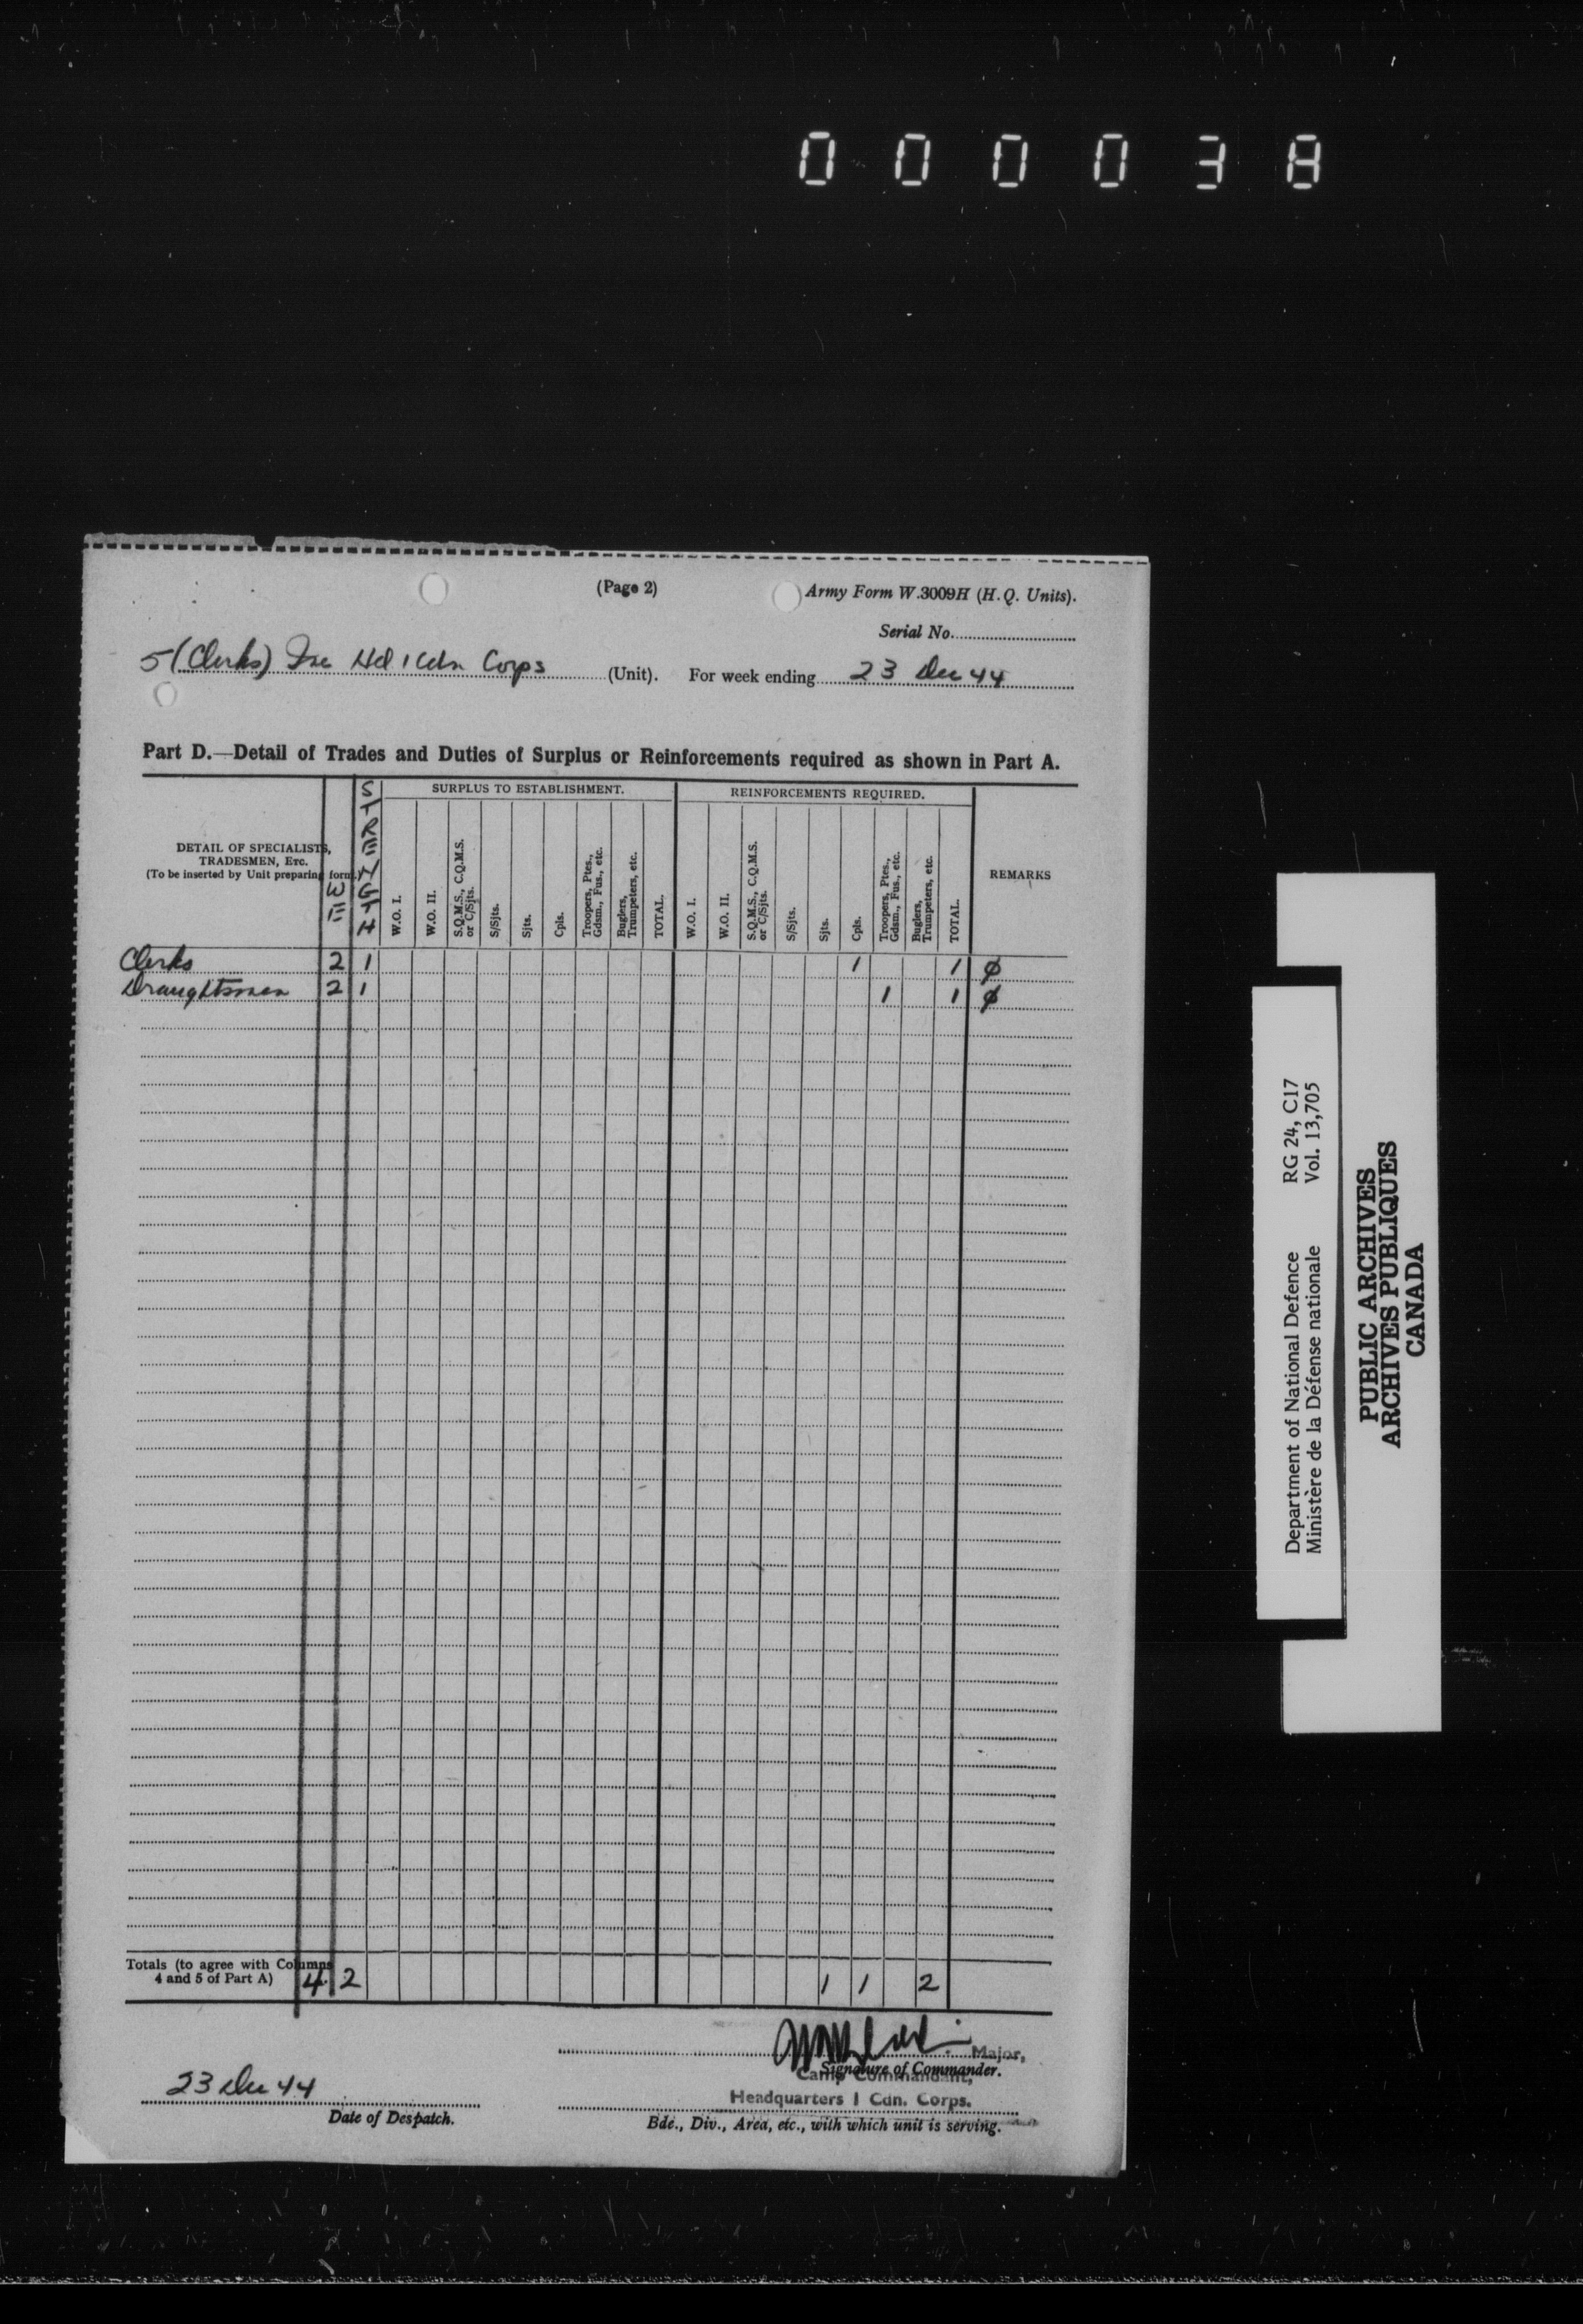 000038
(Page 2)
Army Form W.3009H (H.Q. Units).
Serial No.
5 (Clerks) Hd 1 Cdn Corps (Unit). For week ending 23 Dec 44
Part D.—Detail of Trades and Duties of Surplus or Reinforcements required as shown in Part A.
DETAIL OF SPECIALISTS, TRADESMEN, ETC.
(To be inserted by Unit preparing form.)
WE
STRENGTH
SURPLUS TO ESTABLISHMENT.
W.O. I.
W.O. II.
S.Q.M.S., C.Q.M.S. or C/Sjts.
S/Sjts.
Sjts.
Cpls.
Troopers, Ptes., Gdsm., Fus., etc.
Buglers, Trumpeters, etc.
TOTAL.
REINFORCEMENTS REQUIRED.
W.O. I.
W.O. II.
S.Q.M.S., C.Q.M.S. or C/Sjts.
S/Sjts.
Sjts.
Cpls.
Troopers, Ptes., Gdsm., Fus., etc.
Buglers, Trumpeters, etc.
TOTAL.
REMARKS
Clerks 2 1 1 1 ϕ
Draughtsmen 2 1 1 1 ϕ
Totals (to agree with Columns
4 and 5 of Part A) 4 2 1 1 2
Major,
Signature of Commander.
Camp Commandant,
Headquarters 1 Cdn. Corps.
23 Dec 44
Date of Despatch.
Bde., Div., Area, etc., with which unit is serving.
Department of National Defence RG 24, C17
Ministère de la Défense nationale Vol. 13,705
PUBLIC ARCHIVES
ARCHIVES PUBLIQUES
CANADA